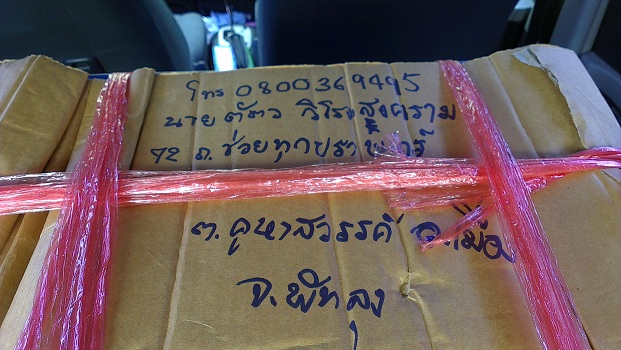 โทร 0800369495
นาย ตัตว วิโรจสงคราม
72 ถ. ช่วยทุกขราษฎร์
ต. คูหาสวรรค์ อ. เมือง
จ. พัทลุง